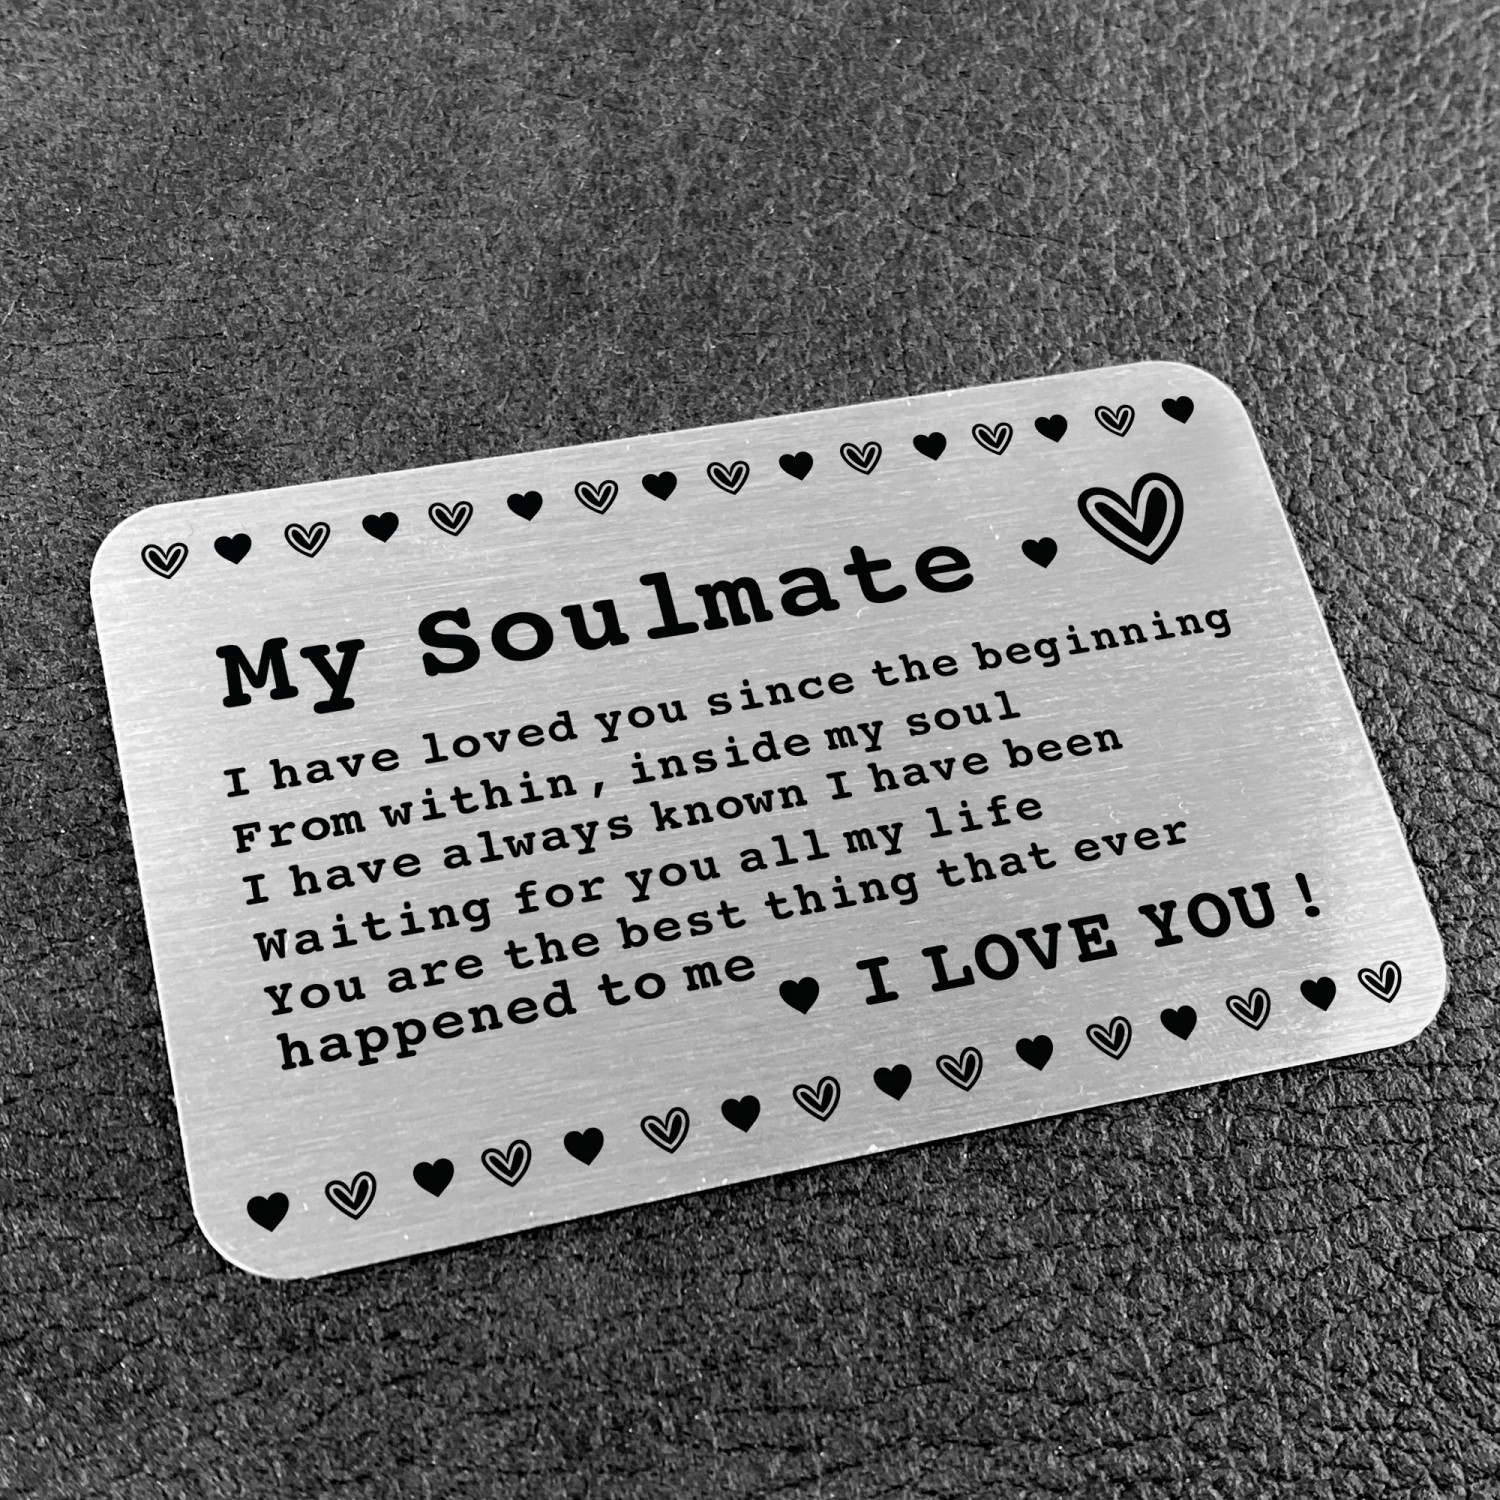 My Soulmate
I have loved you since the beginning
From within, inside my soul
I have always known I have been
Waiting for you all my life
You are the best thing that ever
happened to me
I LOVE YOU!